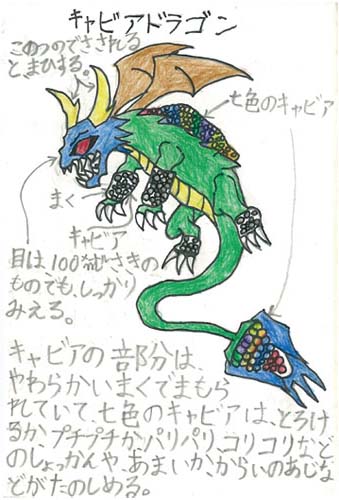 キャビアドラゴン
このつのでさされる
と、まひする。
七色のキャビア
まく
キャビア
目は、100㎞さきの
ものでも、しっかり
みえる。
キャビアの部分は、
やわらかいまくでまもら
れていて七色のキャビアは、とろけ
るか、プチプチか、パリパリ、コリコリなど
のしょっかんや、あまいか、からいのあじな
どがたのしめる。